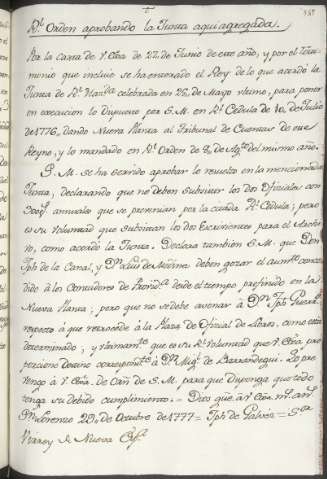 Rl. Orden aprobando la Junta aqui agregada.
Por la carta de V. Exa. de 27. de Junio de este año, y por el Testi-
monio que incluye se ha enterado el Rey de lo que acordó la
Junta de Rl. Hazda. celebrada en de Mayo ultimo, para poner
en execucion lo dispuesto por S.M. en Rl. Cedula de de Julio
de 1776, dando Nueva Planta al Tribunal de Cuentas de ese
Reyno; y lo mandado en Rl. Orden de 8, de Agto. del mismo año.
S. M. se ha servido aprobar lo resuelto en la mencionada
Junta, declarando que no deben subsistir los dos Oficiales con
300 ps. annuales que se prevenian por la citada Rl. Cedula; pero
es su Voluntad que subsistan los dos Escrivientes para el Archi-
vo, como acordó la Junta. Declara tambien S. M. que Dn.
Jph. de la Canal, y Dn. Luis de deben gozar el aumto. conce-
dido á los Contadores de desde el tiempo prefinido en la
Nueva Planta; pero que no se debe á Dn. Jph.
respecto á que retrocede á la Plaza de Oficial de Libros, como está
determinado; y ultimamte. que es su Rl. Voluntad que V. Exa. pro-
porcione destino correspondte. á Dn. Migl. de Barrandegui. Lo pre-
vengo á V. Exa. de Orn. de S. M. para que disponga que todo
tenga su debido cumplimiento. = Dios gue. á V. Exa. ms. as.
Sn. Lorenzo de Octubre de 1777 = Jph. de Galvez = Sor.
Virrey de Nueva Espa.